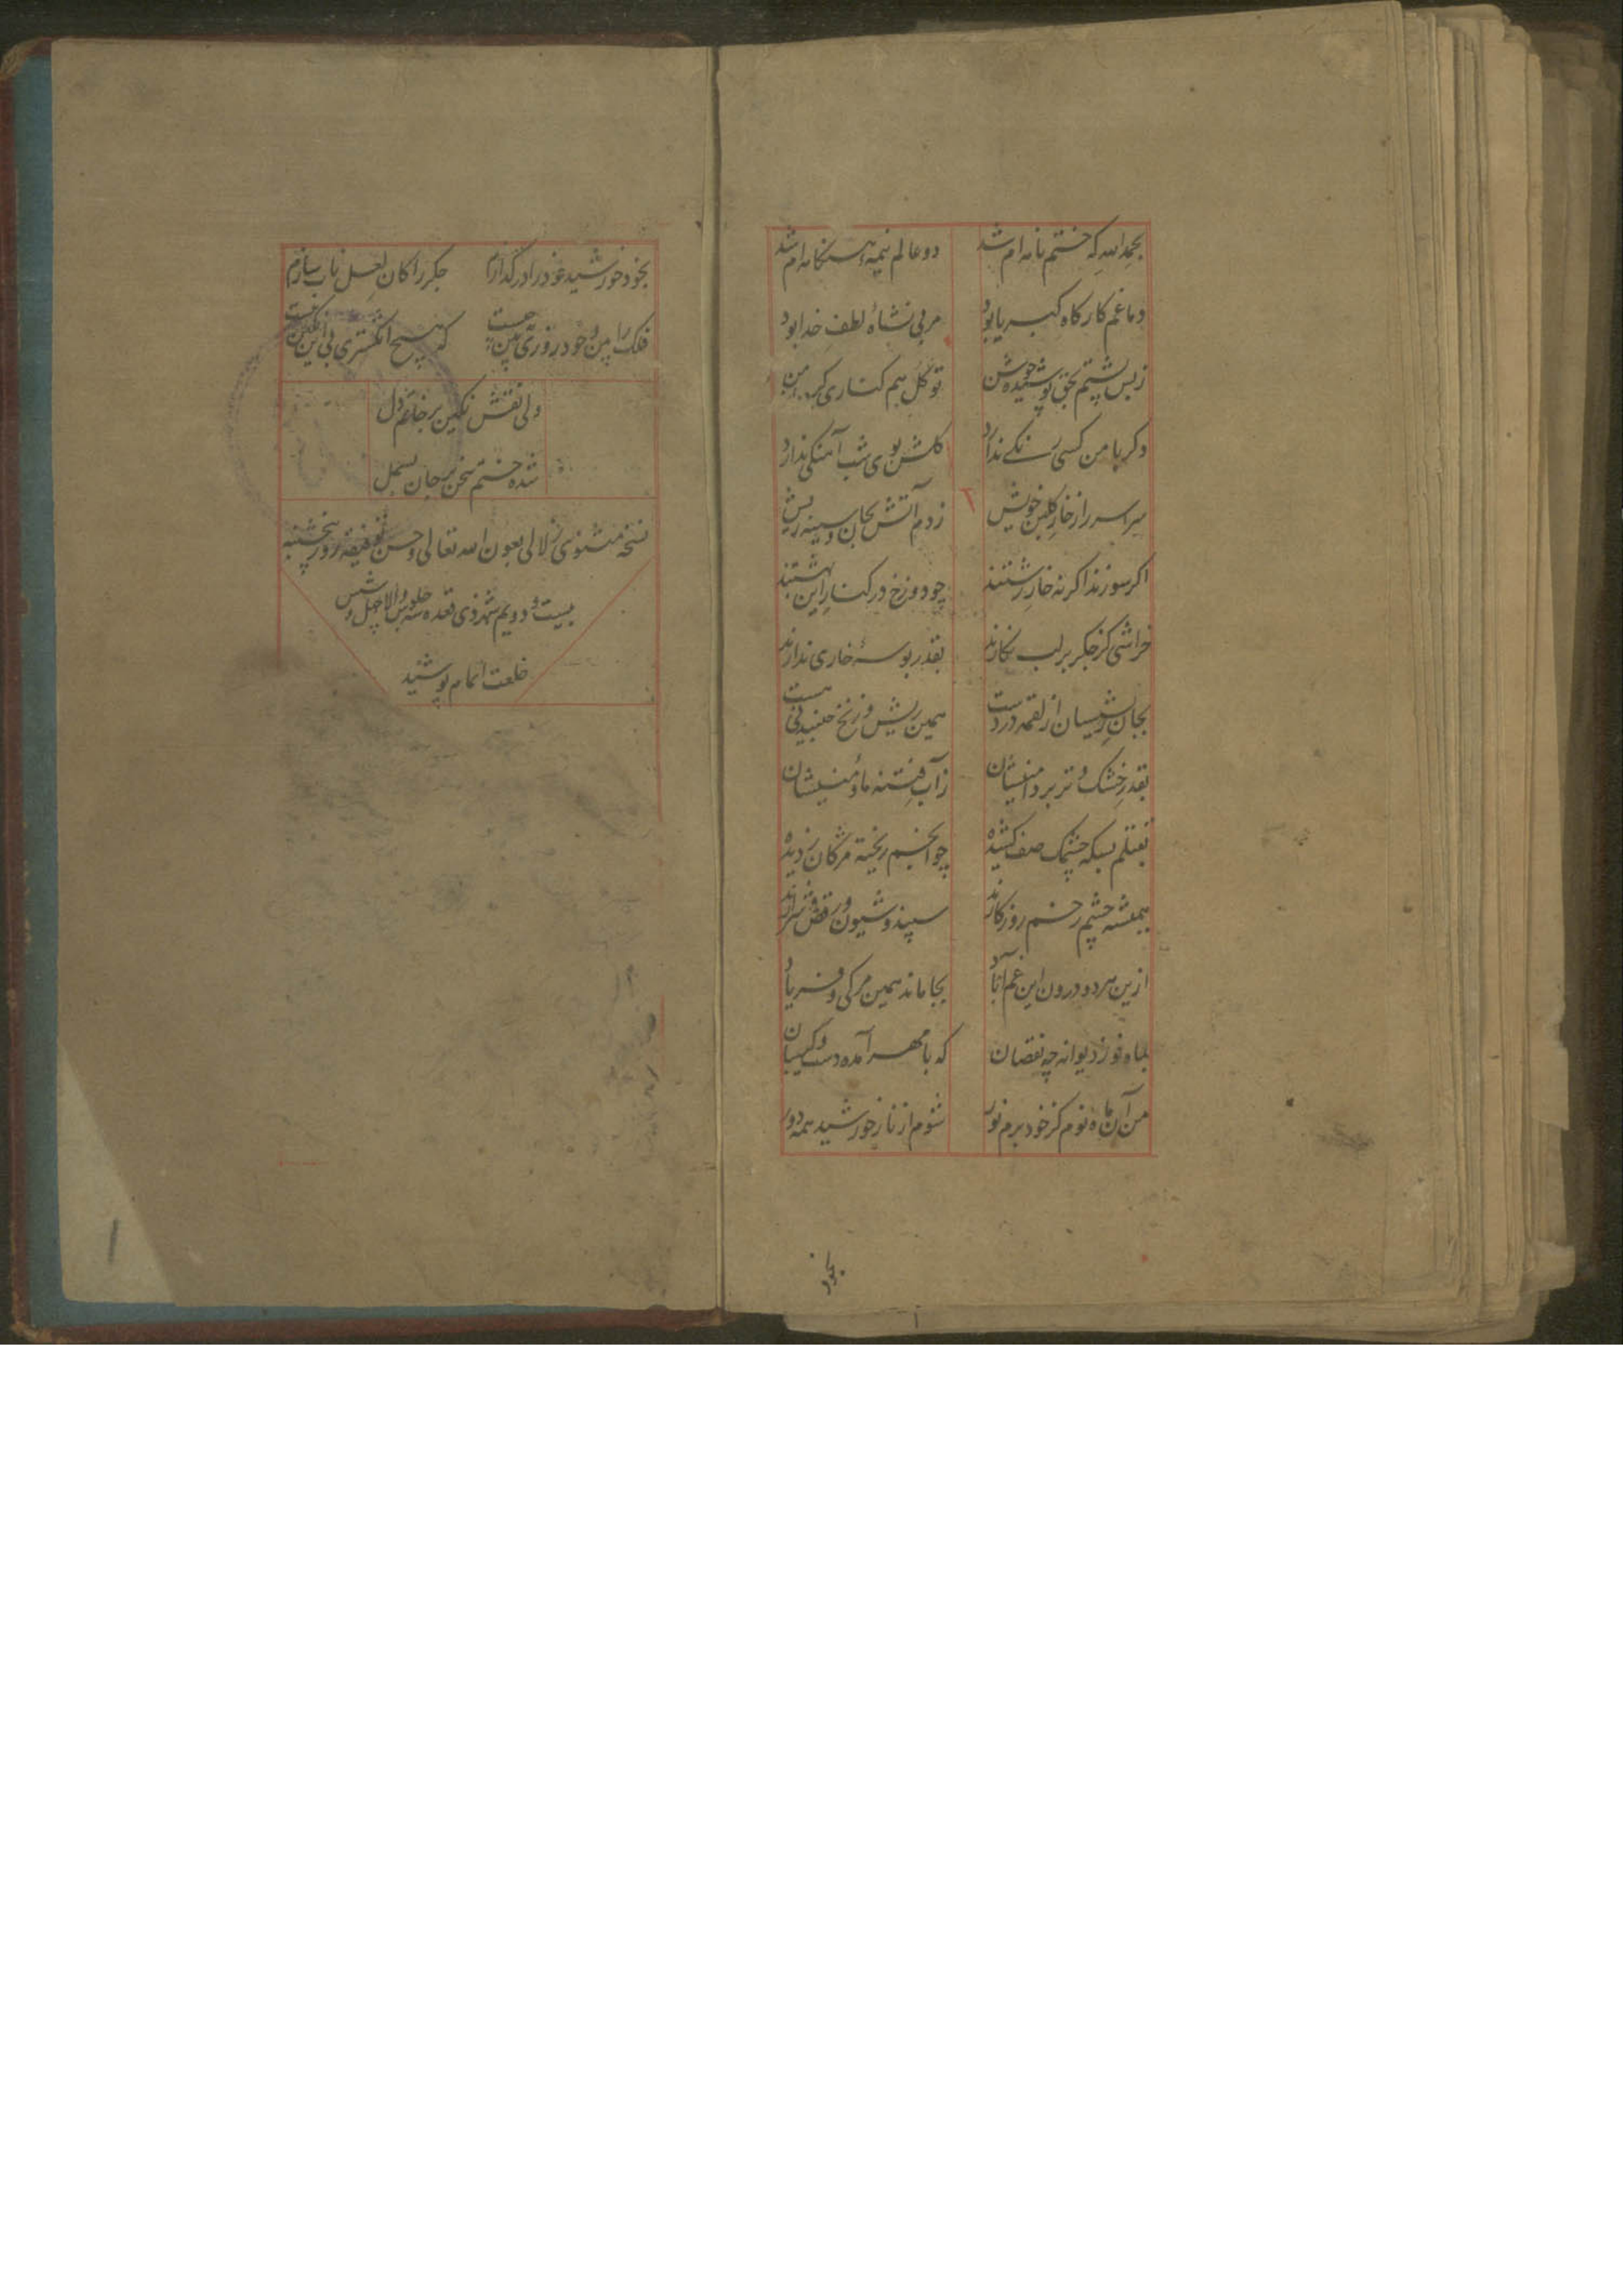 بحمد الله که ختم نامه ام شد دو عالم نیمهٔ هنکامه ام شد
دماغم کارکاه کبریا بود مربی نشاهٔ لطف خدا بود
زبس پشتم بحق پوشیده جوشن توکل هم کناری کرد از من
دکر با من کسی رنکے ندارد کلش بوی شب آهنکی ندارد
سراسر از خار کلبن خویش زدم آتش بجان و سینه ریش
اکر سوزند اکر نه خار زشتند چو دوزخ در کنار این بهشتند
خراشی کز جکر بر لب نکارند بقدر بوسهٔ خاری ندارند
بجان ریشیسان از لقمه در دست همین ریش و زنخ جنبیدنی هست
بقدر خشک و تر بر دامنیشان ز آب فتنه ما و منیشان
بعقلم بسکه چشمک صف کشیده چو انجم ریخته مژکان ز دیده
همیشه چشم زخم روزکارند سپند و شیون و رقص و شرارند
ازین هر دو درون این غم آباد بجا ماند همین مرکی و فریاد
بماه نو ز دیوانه چه نقصان که با مهر آمده دست و کریبان
من آن ماه نوم کز خود برم نور شوم از ناز خورشید همه دور
بخود
بخود خورشید خود را در کدازم جکر را کان لعل ناب سازم
فلک را من وجود روزی من چیست که هیچ انکشتری بی این نکین نیست
ولی نقش نکین بر خاتم دل
شده ختم سخن بر جان بسمل
نسخه مثنوی زلالی بعون الله تعالی و حسن توفیقه روز پنجشنبه
بیست و دویم شهر ذی قعده سنه جلوس والا چهل و شش
خلعت اتمام پوشید